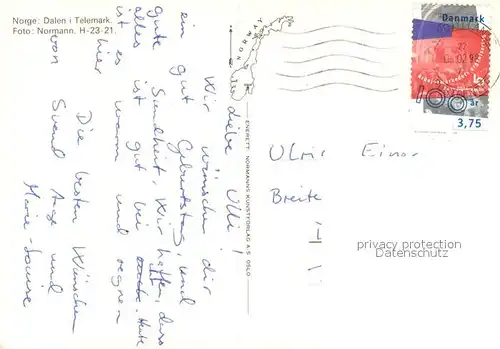 Norge: Dalen i Telemark.
Foto: Normann. H-23-21.
NORWAY
Liebe Ulli!
Wir wünschen dir
ein gut Geburtstag, und
gute Sundheit. Wir hoffen, dass
alles ist gut bei Heute
ist es warm und regnen
hier
Die besten Wünschen
von Svend Aage und
Marie-Louise
ENERETT: NORMANNS KUNSTFORLAG A.S. OSLO
Danmark
100 år
3,75
Ulris Einar
Breite
privacy protection
Datenschutz